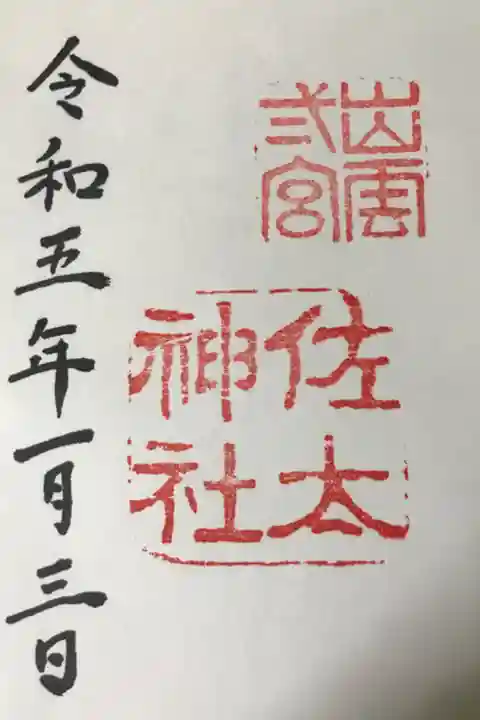 出雲
弐宮
佐太
神社
令和五年一月三日